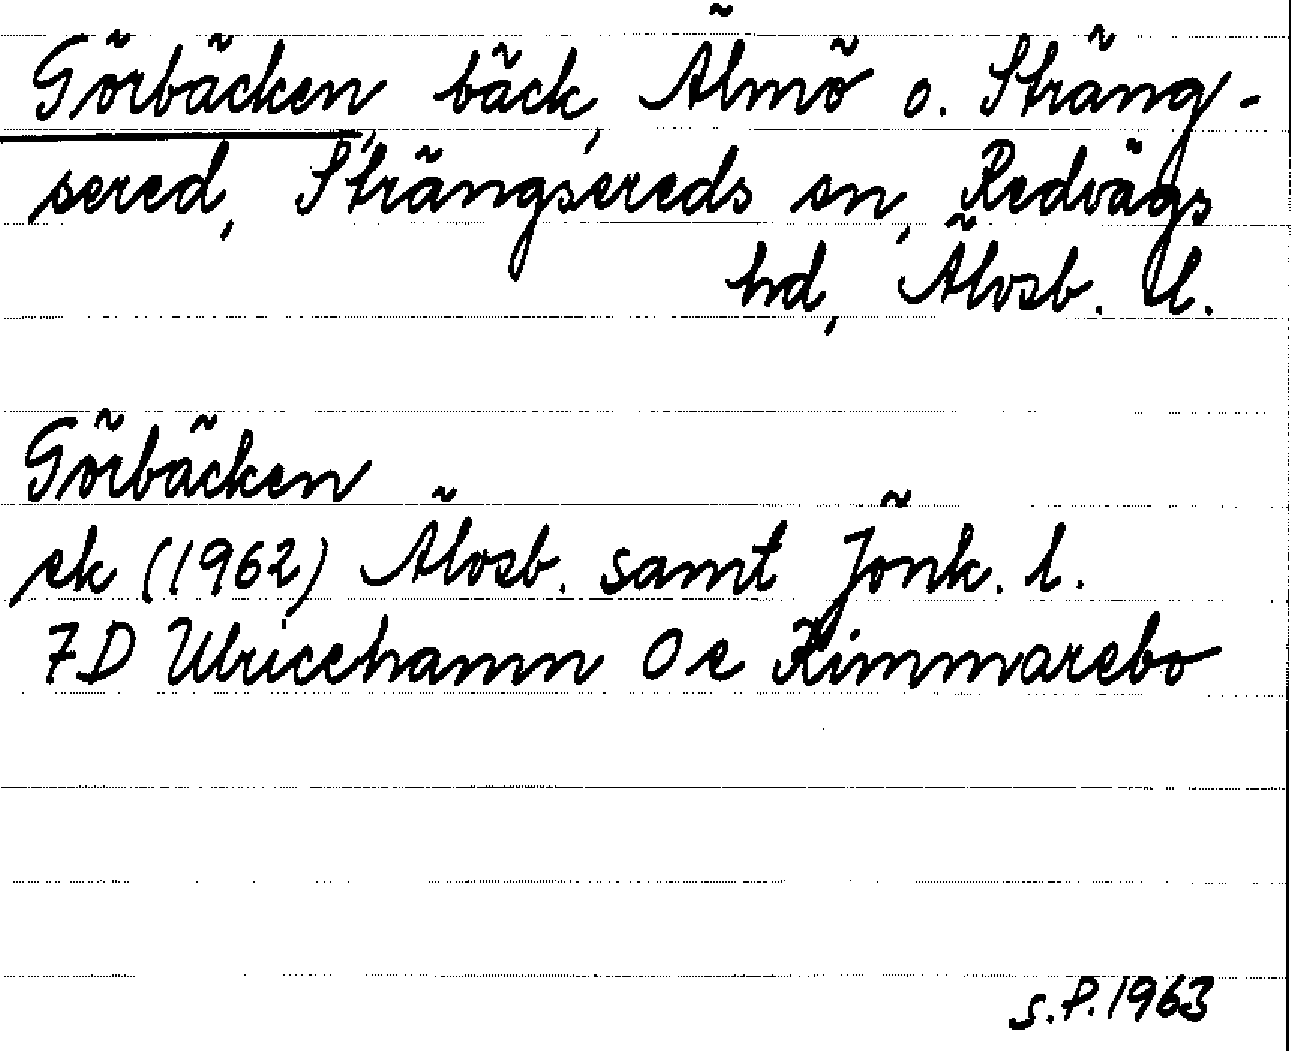 Görbäcken, bäck, Älmö o. Sträng-
sered, Strängsereds sn, Redvägs
hd, Älvsb. l.
Görbäcken
ek (1962) Älvsb. samt Jönk. l.
7D Ulricehamn 0e Kimmarebo
S.P. 1963